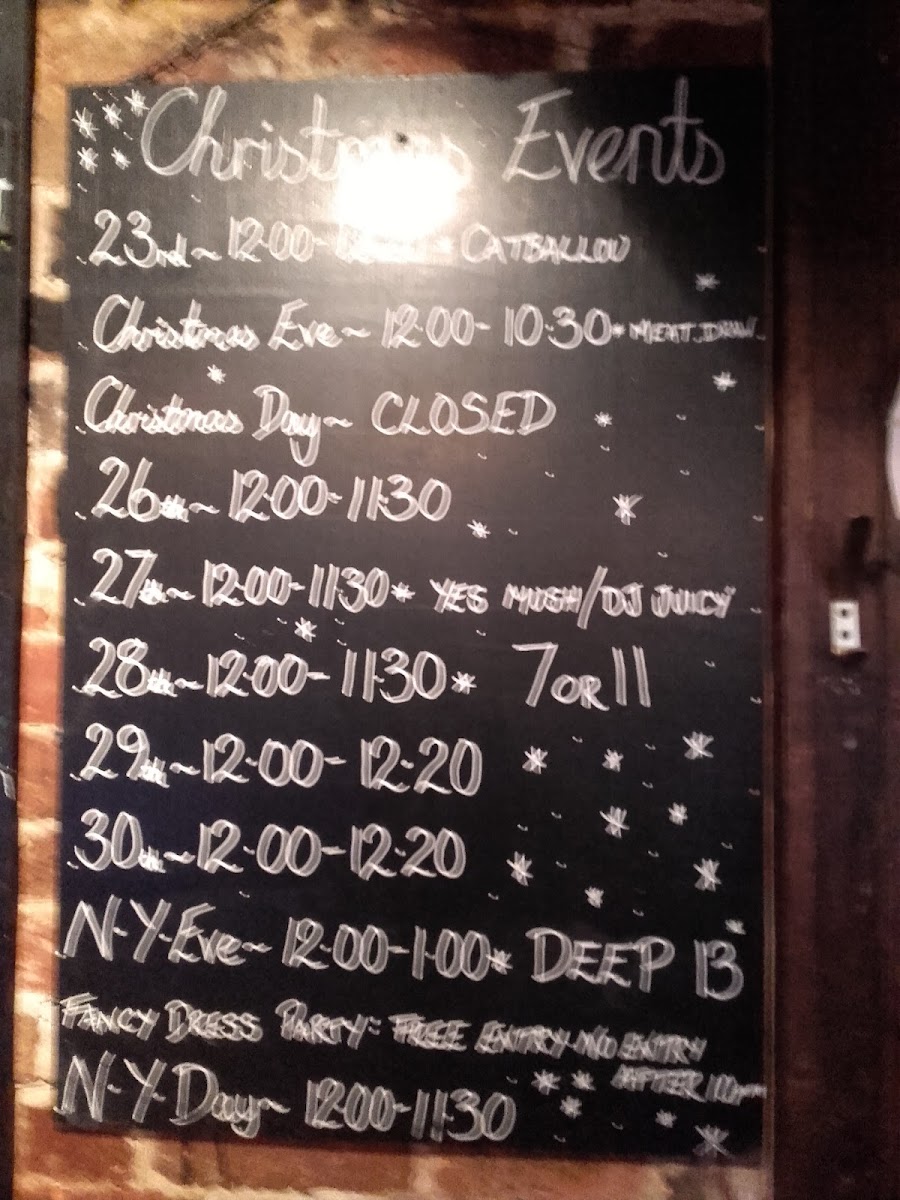 Christmas Events
23rd ~ 12:00- * CATBALLOU
Christmas Eve ~ 12:00- 10:30 * MEAT DRAW
Christmas Day ~ CLOSED
26th ~ 12:00- 11:30
27th ~ 12:00- 11:30 * YES MUSH/DJ JUICY
28th ~ 12:00- 11:30 * 7 OR 11
29th ~ 12:00- 12:20
30th ~ 12:00- 12:20
N·Y·Eve ~ 12:00- 1:00 * DEEP 13
FANCY DRESS PARTY: FREE ENTRY N/O ENTRY
AFTER
N·Y·Day ~ 12:00- 11:30